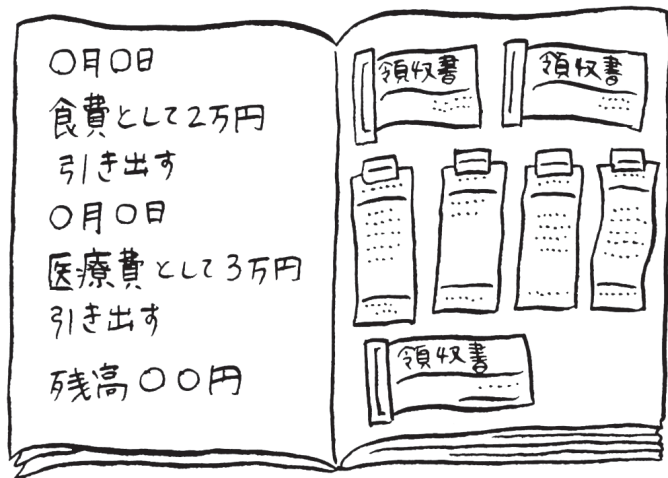 〇月〇日
食費として2万円
引き出す
〇月〇日
医療費として3万円
引き出す
残高〇〇円
領収書
領収書
領収書